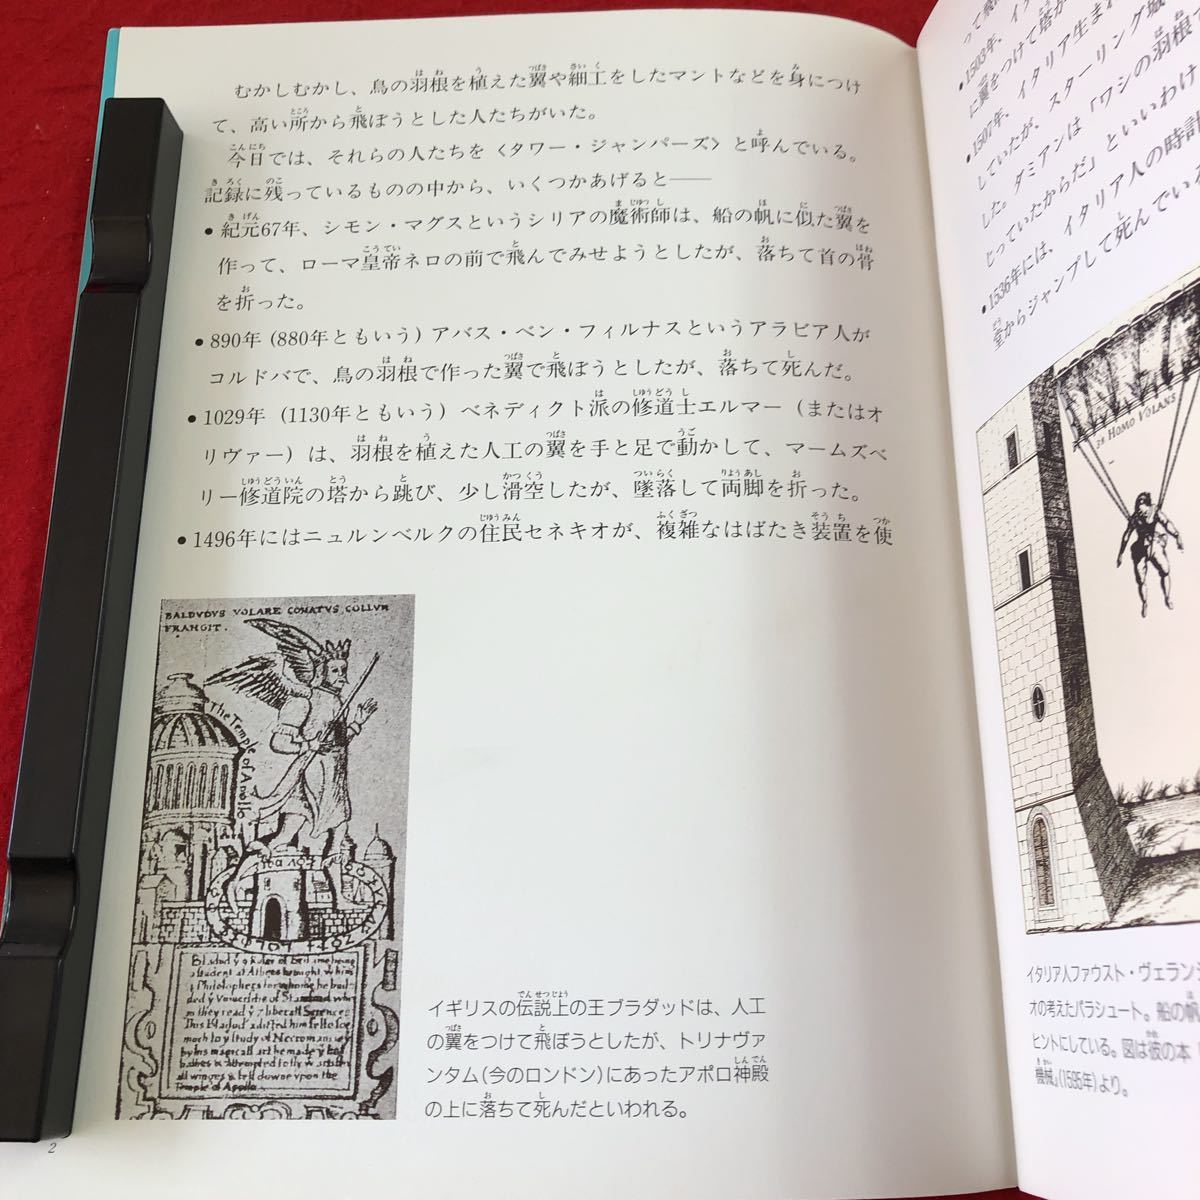 むかしむかし、鳥の羽根を植えた翼や細工をしたマントなどを身につけ
て、高い所から飛ぼうとした人たちがいた。
今日では、それらの人たちを〈タワー・ジャンパーズ〉と呼んでいる。
記録に残っているものの中から、いくつかあげると——
●紀元67年、シモン・マグスというシリアの魔術師は、船の帆に似た翼を
作って、ローマ皇帝ネロの前で飛んでみせようとしたが、落ちて首の骨
を折った。
●890年(880年ともいう)アバス・ベン・フィルナスというアラビア人が
コルドバで、鳥の羽根で作った翼で飛ぼうとしたが、落ちて死んだ。
●1029年(1130年ともいう)ベネディクト派の修道士エルマー(またはオ
リヴァー)は、羽根を植えた人工の翼を手と足で動かして、マームズベ
リー修道院の塔から跳び、少し滑空したが、墜落して両脚を折った。
●1496年にはニュルンベルクの住民セネキオが、複雑なはばたき装置を使
BALDVDVS VOLARE CONATVS COLLVM
FRANGIT.
The Temple of Apollo
イギリスの伝説上の王ブラダッドは、人工
の翼をつけて飛ぼうとしたが、トリナヴァ
ンタム(今のロンドン)にあったアポロ神殿
の上に落ちて死んだといわれる。
2
って飛
●1503年、イタ
に翼をつけて塔か
●1507年、イタリア生まれ
していたが、スターリング城
した。ダミアンは「ワシの羽根
じっていたからだ」といいわけ
●1536年には、イタリア人の時計
堂からジャンプして死んでいる
38 HOMO VOLANS
イタリア人ファウスト・ヴェランツ
オの考えたパラシュート。船の帆
ヒントにしている。図は彼の本
機械』(1595年)より。